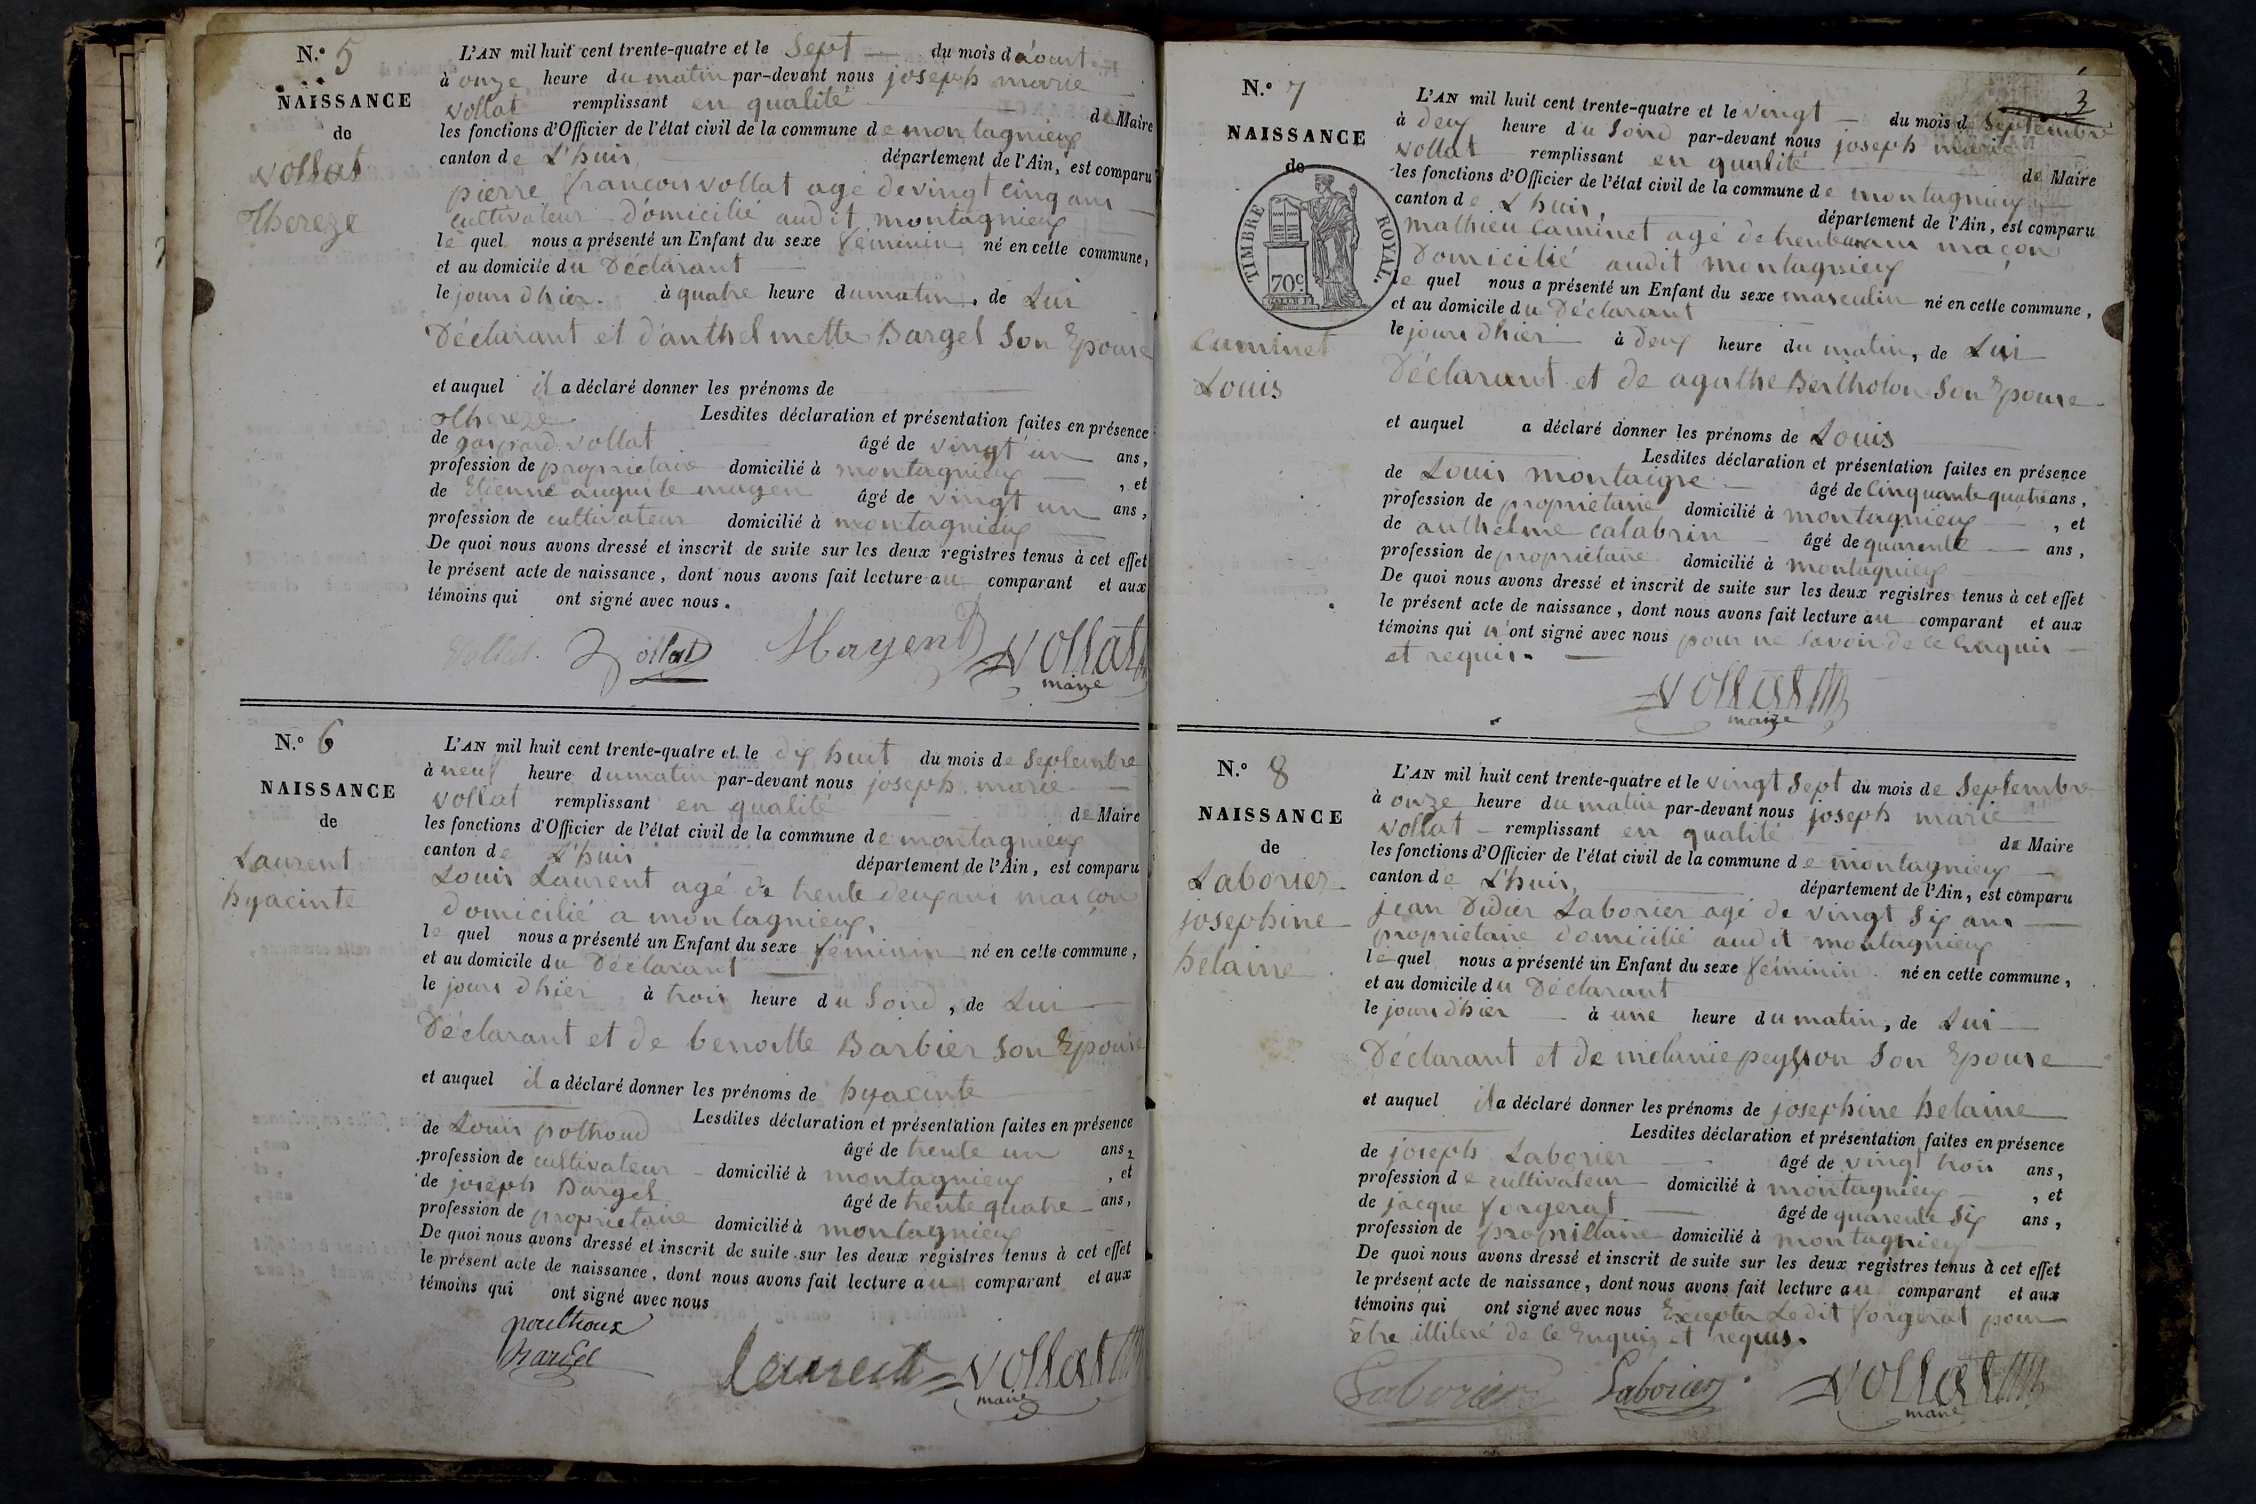 N.° 5
NAISSANCE
de
Vollat
Thereze
L'AN mil huit cent trente-quatre et le Sept du mois d'aoust
à onze heure du matin par-devant nous joseph marie
Vollat remplissant en qualité de Maire
les fonctions d'Officier de l'état civil de la commune de montagnieux
canton de L'huis département de l'Ain, est comparu
pierre françois vollat agé de vingt cinq ans
cultivateur domicilié audit montagnieux
le quel nous a présenté un Enfant du sexe féminin né en cette commune,
et au domicile du Déclarant
le jours d'hier à quatre heure du matin, de Lui
Déclarant et d'anthelmette Bargel Son Epouse
et auquel il a déclaré donner les prénoms de
Thereze Lesdites déclaration et présentation faites en présence
de gaspard vollat âgé de vingt un ans,
profession de propriétaire domicilié à montagnieux, et
de Etienne auguste mayen âgé de vingt un ans,
profession de cultivateur domicilié à montagnieux
De quoi nous avons dressé et inscrit de suite sur les deux registres tenus à cet effet
le présent acte de naissance, dont nous avons fait lecture au comparant et aux
témoins qui ont signé avec nous.
Vollat Vollat Mayen Vollat
maire
N.° 6
NAISSANCE
de
Laurent
hyacinte
L'AN mil huit cent trente-quatre et le dix huit du mois de Septembre
à neuf heure du matin par-devant nous joseph marie
Vollat remplissant en qualité de Maire
les fonctions d'Officier de l'état civil de la commune de montagnieux
canton de L'huis département de l'Ain, est comparu
Louis Laurent agé de trente deux ans marçon
domicilié a montagnieux,
le quel nous a présenté un Enfant du sexe féminin né en cette commune,
et au domicile du Déclarant
le jours d'hier à trois heure du Soird, de Lui
Déclarant et de benoitte Barbier Son Epouse
et auquel il a déclaré donner les prénoms de hyacinte
Lesdites déclaration et présentation faites en présence
de Louis pothoud âgé de trente un ans,
profession de cultivateur domicilié à montagnieux, et
de joseph Bargel âgé de trente quatre ans,
profession de propriétaire domicilié à montagnieux
De quoi nous avons dressé et inscrit de suite sur les deux registres tenus à cet effet
le présent acte de naissance, dont nous avons fait lecture au comparant et aux
témoins qui ont signé avec nous
poulhoux
Bargel
Laurent Vollat
maire
3
N.° 7
NAISSANCE
de
TIMBRE ROYAL.
70c
Caminet
Louis
L'AN mil huit cent trente-quatre et le vingt du mois de Septembre
à deux heure du Soird par-devant nous joseph marie
Vollat remplissant en qualité de Maire
les fonctions d'Officier de l'état civil de la commune de montagnieux
canton de L'huis, département de l'Ain, est comparu
mathieu Caminet agé de trente ans maçon
Domicilié audit montagnieux
le quel nous a présenté un Enfant du sexe masculin né en cette commune,
et au domicile du Déclarant
le jours d'hier à deux heure du matin, de Lui
Déclarant et de agathe Bertholon Son Epouse
et auquel a déclaré donner les prénoms de Louis
Lesdites déclaration et présentation faites en présence
de Louis montaigre âgé de Cinquante quatre ans,
profession de propriétaire domicilié à montagnieux, et
de anthelme calabrin âgé de quarente ans,
profession de propriétaire domicilié à montagnieux
De quoi nous avons dressé et inscrit de suite sur les deux registres tenus à cet effet
le présent acte de naissance, dont nous avons fait lecture au comparant et aux
témoins qui n'ont signé avec nous pour ne Savoir de ce Enquis
et requis.
Vollat
maire
N.° 8
NAISSANCE
de
Laborier
josephine
helaine
L'AN mil huit cent trente-quatre et le vingt Sept du mois de Septembre
à onze heure du matin par-devant nous joseph marie
Vollat remplissant en qualité de Maire
les fonctions d'Officier de l'état civil de la commune de montagnieux
canton de L'huis, département de l'Ain, est comparu
jean Didier Laborier agé de vingt Six ans
propriétaire domicilié audit montagnieux
le quel nous a présenté un Enfant du sexe féminin né en cette commune,
et au domicile du Déclarant
le jours d'hier à une heure du matin, de Lui
Déclarant et de mélanie peysson Son Epouse
et auquel il a déclaré donner les prénoms de josephine helaine
Lesdites déclaration et présentation faites en présence
de joseph Laborier âgé de vingt trois ans,
profession de cultivateur domicilié à montagnieux, et
de jacque forgerat âgé de quarente Six ans,
profession de propriétaire domicilié à montagnieux
De quoi nous avons dressé et inscrit de suite sur les deux registres tenus à cet effet
le présent acte de naissance, dont nous avons fait lecture au comparant et aux
témoins qui ont signé avec nous Excepter Ledit forgerat pour
être illiteré de ce Enquis et requis.
Laborier Laborier Vollat
maire